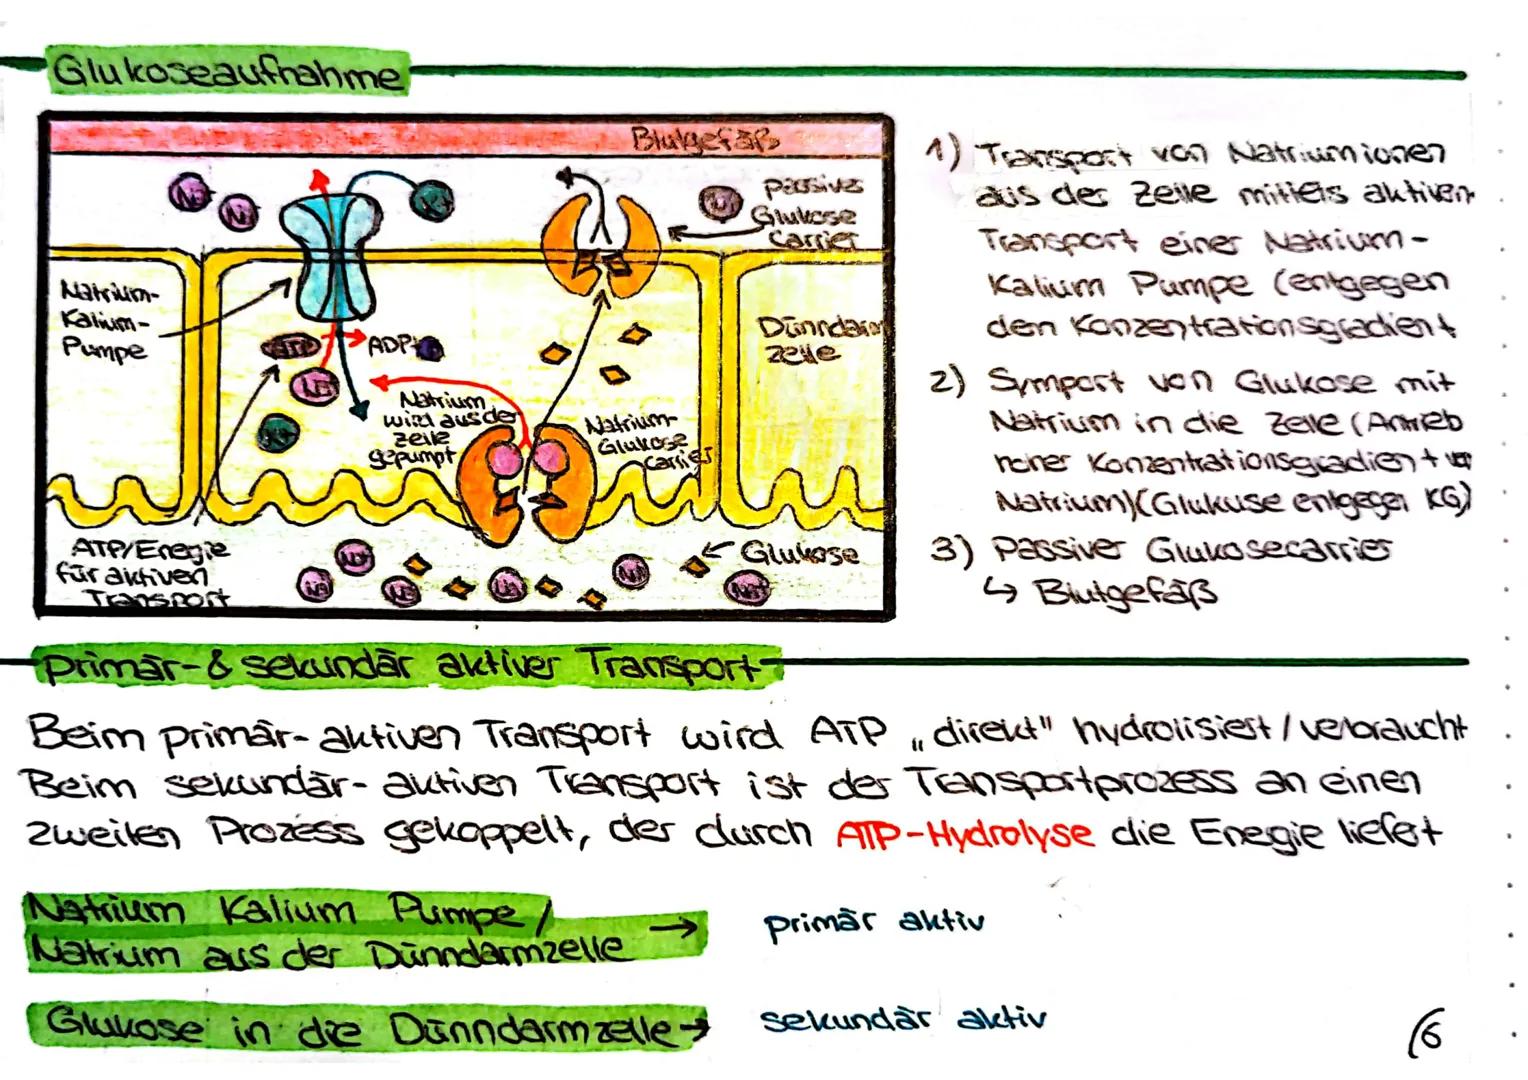 Glukoseaufnahme
Blutgefäß
Na+
Na+
K+
Na+
passiver
Glukose
Carrier
Natrium-
Kalium-
Pumpe
ATP
ADP+
Na+
K+
Natrium
wird aus der
Zelle
gepumpt
Natrium-
Glukose
Carrier
Dünndarm
zelle
ATP/Enegie
für aktiven
Transport
Na+
Na+
Na+
Na+
Na+
Na+
Glukose
1) Transport von Natriumionen
aus der Zelle mittels aktiven
Transport einer Natrium-
Kalium Pumpe (entgegen
dem Konzentrationsgradient
2) Symport von Glukose mit
Natrium in die Zelle (Antrieb
hoher Konzentrationsgradient von
Natrium)(Glukose entgegen KG)
3) Passiver Glukosecarrier
↳ Blutgefäß
primär- & sekundär aktiver Transport
Beim primär-aktiven Transport wird ATP „direkt" hydrolisiert/verbraucht
Beim sekundär-aktiven Transport ist der Transportprozess an einen
zweiten Prozess gekoppelt, der durch ATP-Hydrolyse die Enegie liefert
Natrium Kalium Pumpe /
Natrium aus der Dünndarmzelle → primär aktiv
Glukose in die Dünndarmzelle → sekundär aktiv
6